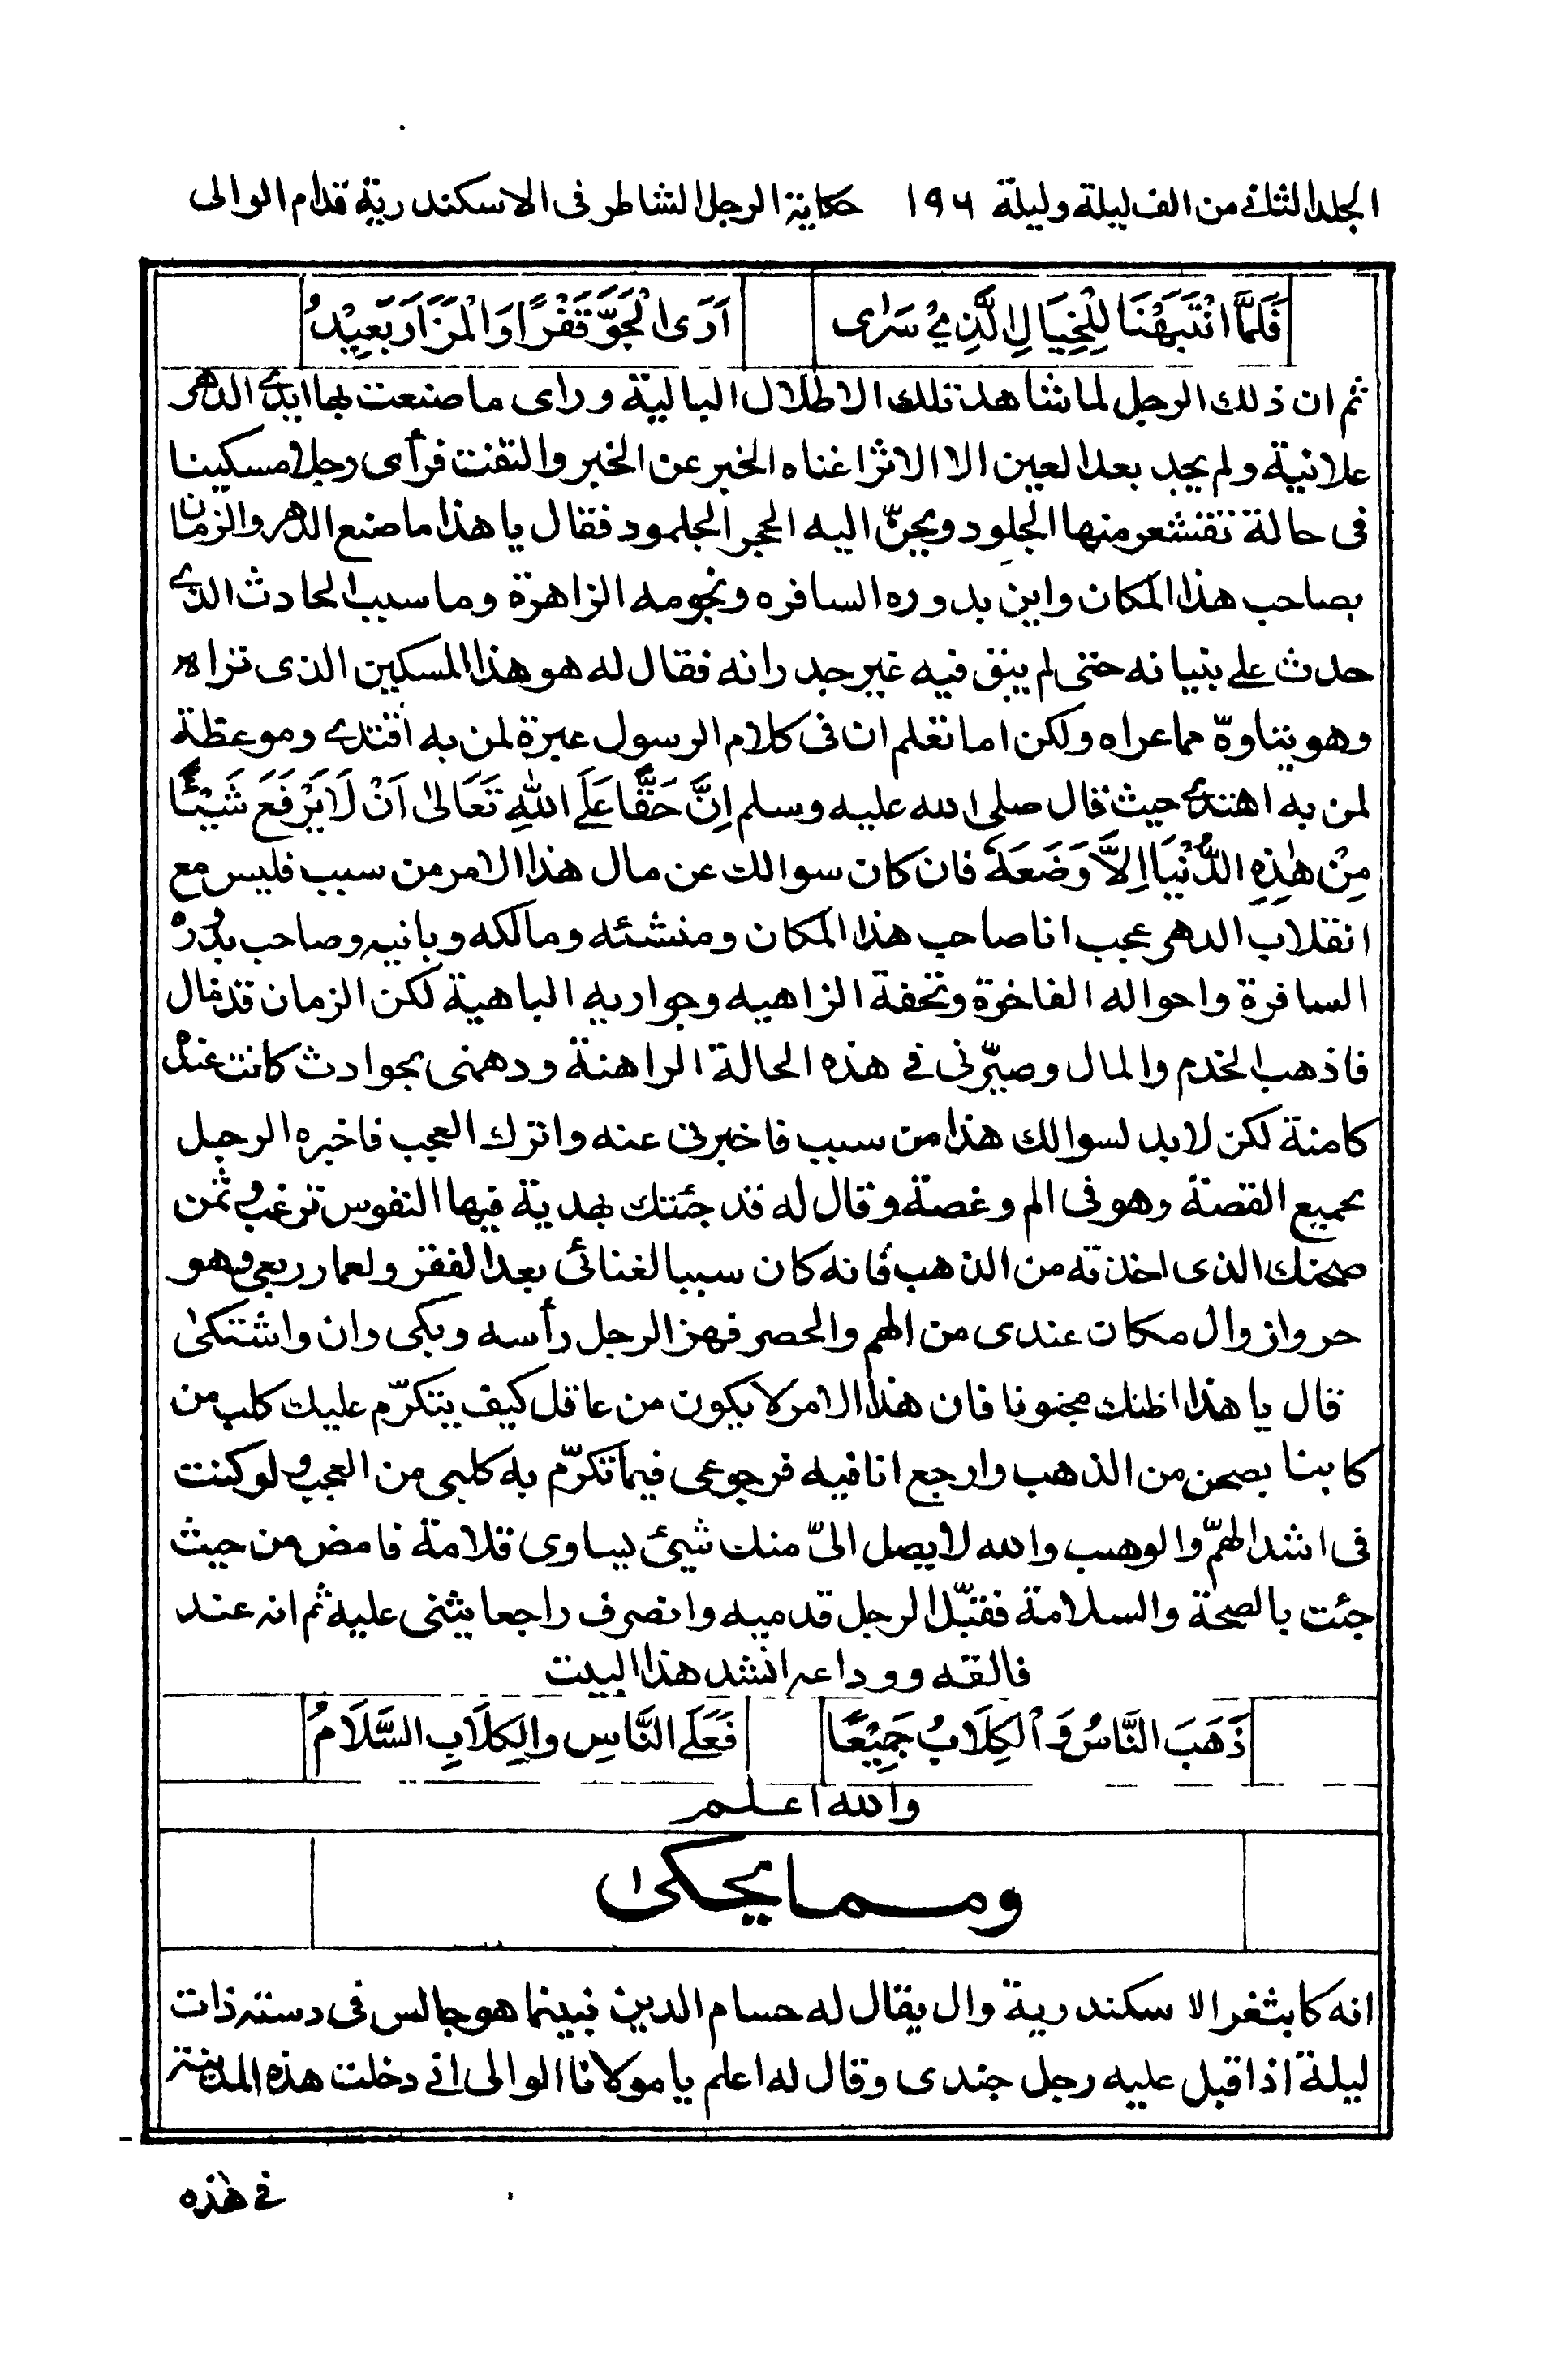 الجلد الثاني من الف ليلة وليلة ١٩٦ حكاية الرجل الشاطر فى الاسكندرية قدام الوالى
فَلَمَّا انْتَبَهْنَا لِلْخِيَالِ الَّذِيْ سَرٰى اَرَى الْجَوَّ قَفْرًا وَالْمَزَارَ بَعِيْدُ
ثم ان ذلك الرجل لما شاهد تلك الاطلال البالية وراى ما صنعت بها ايدي الدهر
علانية ولم يجد بعد العين الا الاثر اغناه الخبر عن الخبر والتفت فرأى رجلا مسكينا
فى حالة تقشعر منها الجلود ويحنّ اليه الحجر الجلمود فقال يا هذا ما صنع الدهر والزمان
بصاحب هذا المكان واين بدوره السافره ونجومه الزاهرة وما سبب الحادث الذي
حدث على بنيانه حتى لم يبق فيه غير جدرانه فقال له هو هذا المسكين الذى تراه
وهو يتاوّه مما عراه ولكن اما تعلم ان فى كلام الرسول عبرة لمن به اقتدي وموعظة
لمن به اهتدي حيث قال صلى الله عليه وسلم اِنَّ حَقًّا عَلَى اللّٰهِ تَعَالٰى اَنْ لَا يَرْفَعَ شَيْئًا
مِنْ هٰذِهِ الدُّنْيَا اِلَّا وَضَعَهُ فان كان سوالك عن مال هذا الامر من سبب فليس مع
انقلاب الدهر عجب انا صاحب هذا المكان ومنشئه ومالكه وبانيه وصاحب بدوره
السافرة واحواله الفاخرة وتحفة الزاهيه وجواريه الباهية لكن الزمان قد مال
فاذهب الخدم والمال وصيّرنى في هذه الحالة الراهنة ودهمنى بحوادث كانت عنده
كامنة لكن لا بد لسوالك هذا من سبب فاخبرنى عنه واترك العجب فاخبره الرجل
بجميع القصة وهو فى الم وغصة وقال له قد جئتك بهدية فيها النفوس ترغب وثمن
صحنك الذى اخذته من الذهب فانه كان سببا لغنائى بعد الفقر ولعمار ربعى وهو
حر وازوال مكان عندى من الهم والحصر فهز الرجل رأسه وبكى وان واشتكىٰ
قال يا هذا اظنك مجنونا فان هذا الامر لا يكون من عاقل كيف يتكرّم عليك كلب من
كابنا بصحن من الذهب وارجع انا فيه فرجوعى فيما تكرّم به كلبى من العجب ولو كنت
فى اشد الهمّ والوصب والله لا يصل الىّ منك شيئ يساوى قلامة فامض من حيث
جئت بالصحة والسلامة فقبّل الرجل قدميه وانصرف راجعا يثنى عليه ثم انه عند
فالقه ووداعه انشد هذا البيت
ذَهَبَ النَّاسُ وَالْكِلَابُ جَمِيْعًا فَعَلَى النَّاسِ وَالكِلَابِ السَّلَامُ
والله اعلم
ومما يحكىٰ
انه كا بثغر الاسكندرية وال يقال له حسام الدين فبينما هو جالس فى دسته ذات
ليلة اذ اقبل عليه رجل جندى وقال له اعلم يا مولانا الوالى اني دخلت هذه المدينة
في هٰذه